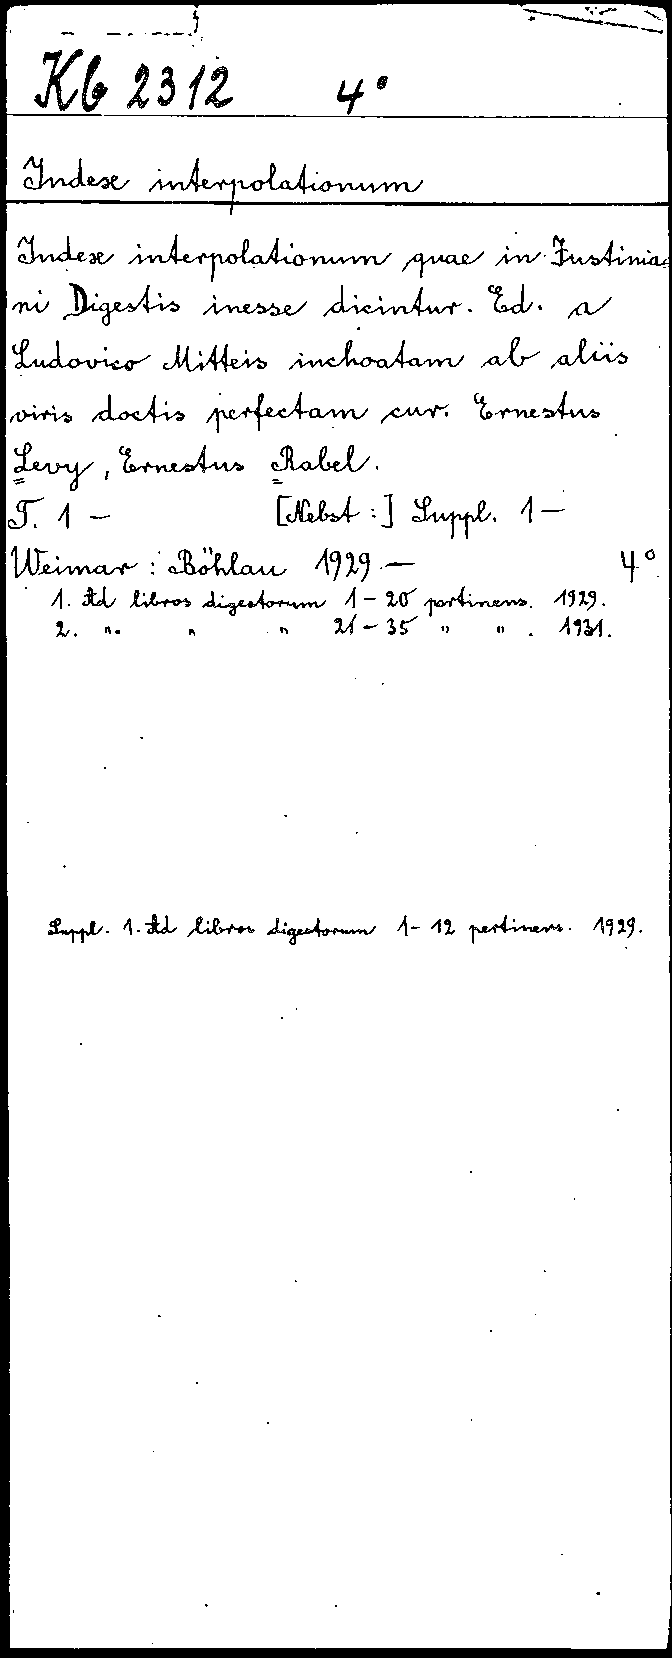 Kb 2312 4°
Index interpolationum
Index interpolationum quae in Justinia-
ni Digestis inesse dicintur. Ed. a
Ludovico Mitteis inchoatam ab aliis
viris doctis perfectam cur. Ernestus
Levy, Ernestus Rabel.
T. 1 — [Nebst:] Suppl. 1 —
Weimar: Böhlau 1929 — 4°
1. Ad libros digestorum 1–20 pertinens. 1929.
2. " " " 21–35 " " . 1931.
Suppl. 1. Ad libros digestorum 1–12 pertinens. 1929.